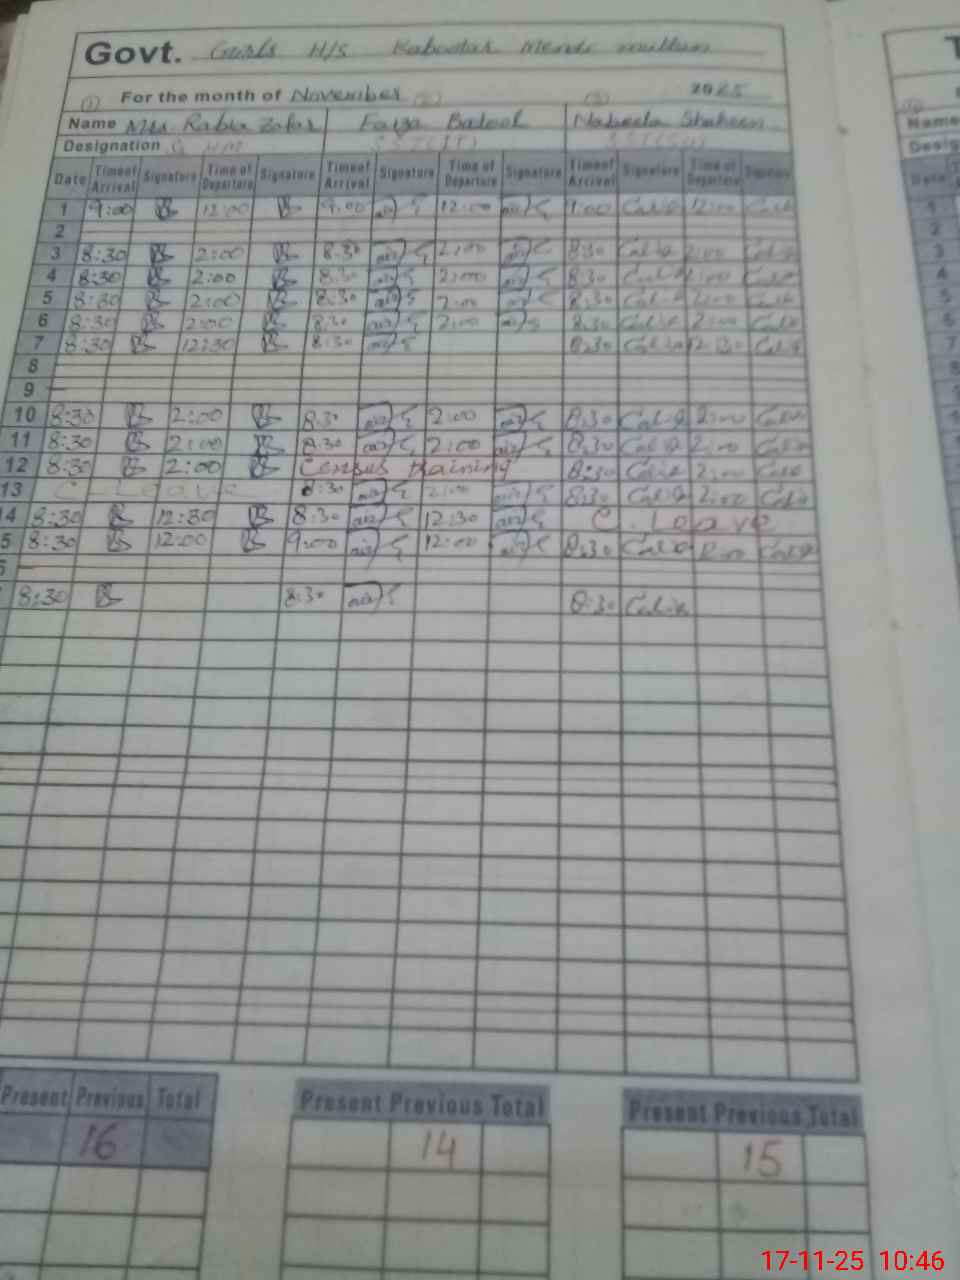 Govt. Girls H/S Kabootar Mendi multan
(1) For the month of November (2) (3) 2025
Name Mrs. Rabia Zafar Faiza Batool Nabeela Shaheen
Designation S. HM SST(IT) SST(Sci)
Date Time of Arrival Signature Time of Departure Signature Time of Arrival Signature Time of Departure Signature Time of Arrival Signature Time of Departure Signature
1 9:00 12:00 9:00 12:00 9:00 12:00
2
3 8:30 2:00 8:30 2:00 8:30 2:00
4 8:30 2:00 8:30 2:00 8:30 2:00
5 8:30 2:00 8:30 2:00 8:30 2:00
6 8:30 2:00 8:30 2:00 8:30 2:00
7 8:30 12:30 8:30 8:30 12:30
8
9
10 8:30 2:00 8:30 2:00 8:30 2:00
11 8:30 2:00 8:30 2:00 8:30 2:00
12 8:30 2:00 Census training 8:30 2:00
13 C-Leave 8:30 2:00 8:30 2:00
14 8:30 12:30 8:30 12:30 C. Leave
5 8:30 12:00 9:00 12:00 8:30
8:30 8:30 8:30
Present Previous Total Present Previous Total Present Previous Total
16 14 15
17-11-25 10:46